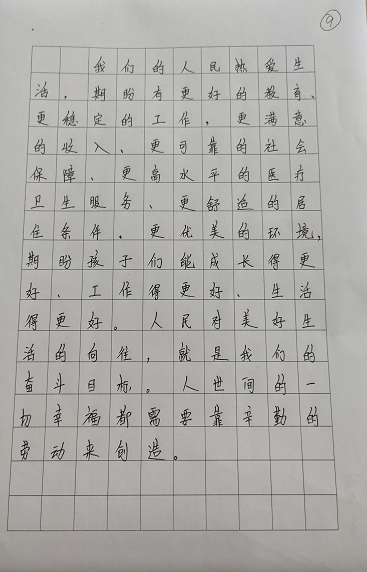 ⑨
我们的人民热爱生
活，期盼有更好的教育、
更稳定的工作，更满意
的收入、更可靠的社会
保障、更高水平的医疗
卫生服务、更舒适的居
住条件。更优美的环境，
期盼孩子们能成长得更
好、工作得更好、生活
得更好。人民对美好生
活的向往，就是我们的
奋斗目标。人世间的一
切幸福都需要靠辛勤的
劳动来创造。